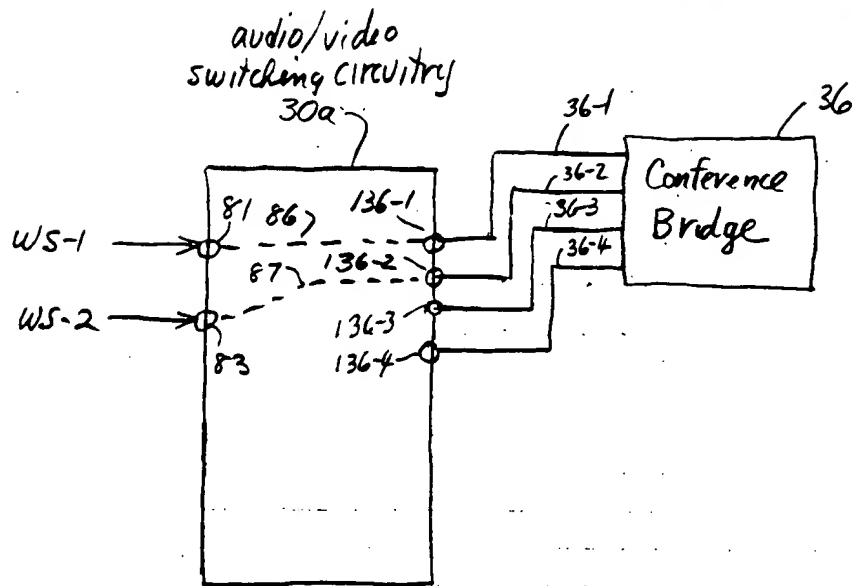 audio/video
switching circuitry
30a
36
36-1
36-2
36-3
36-4
Conference
Bridge
WS-1
81
86
136-1
136-2
87
WS-2
83
136-3
136-4